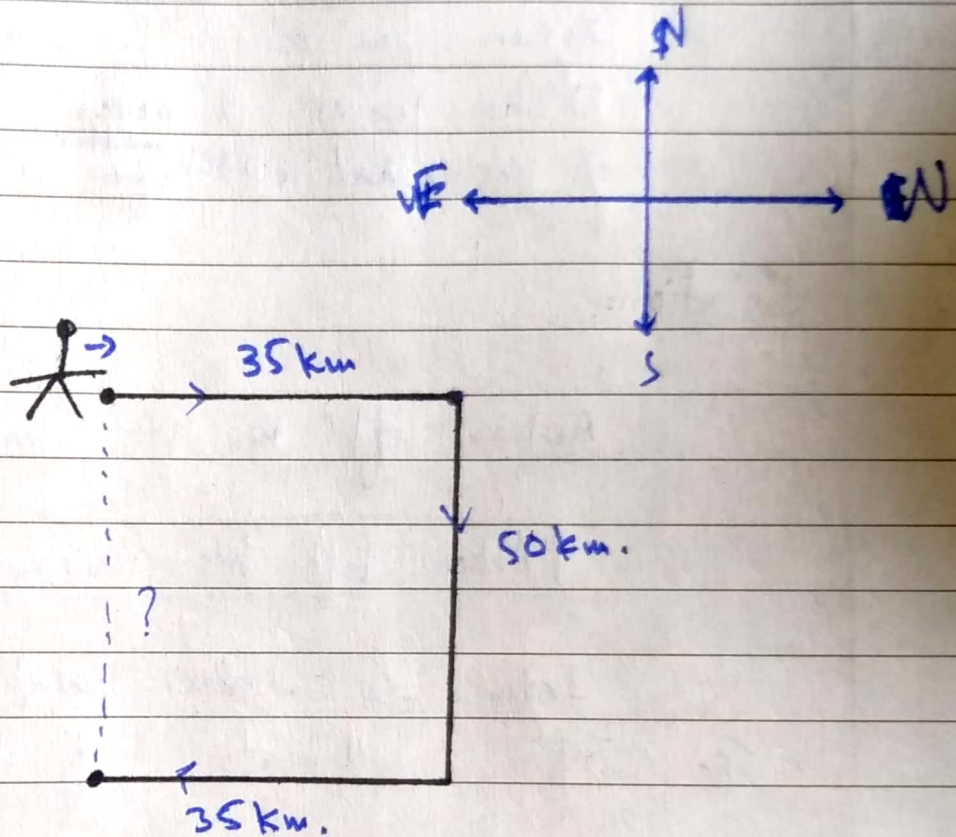 N
E W
S
35 km
50 km.
?
35 km.